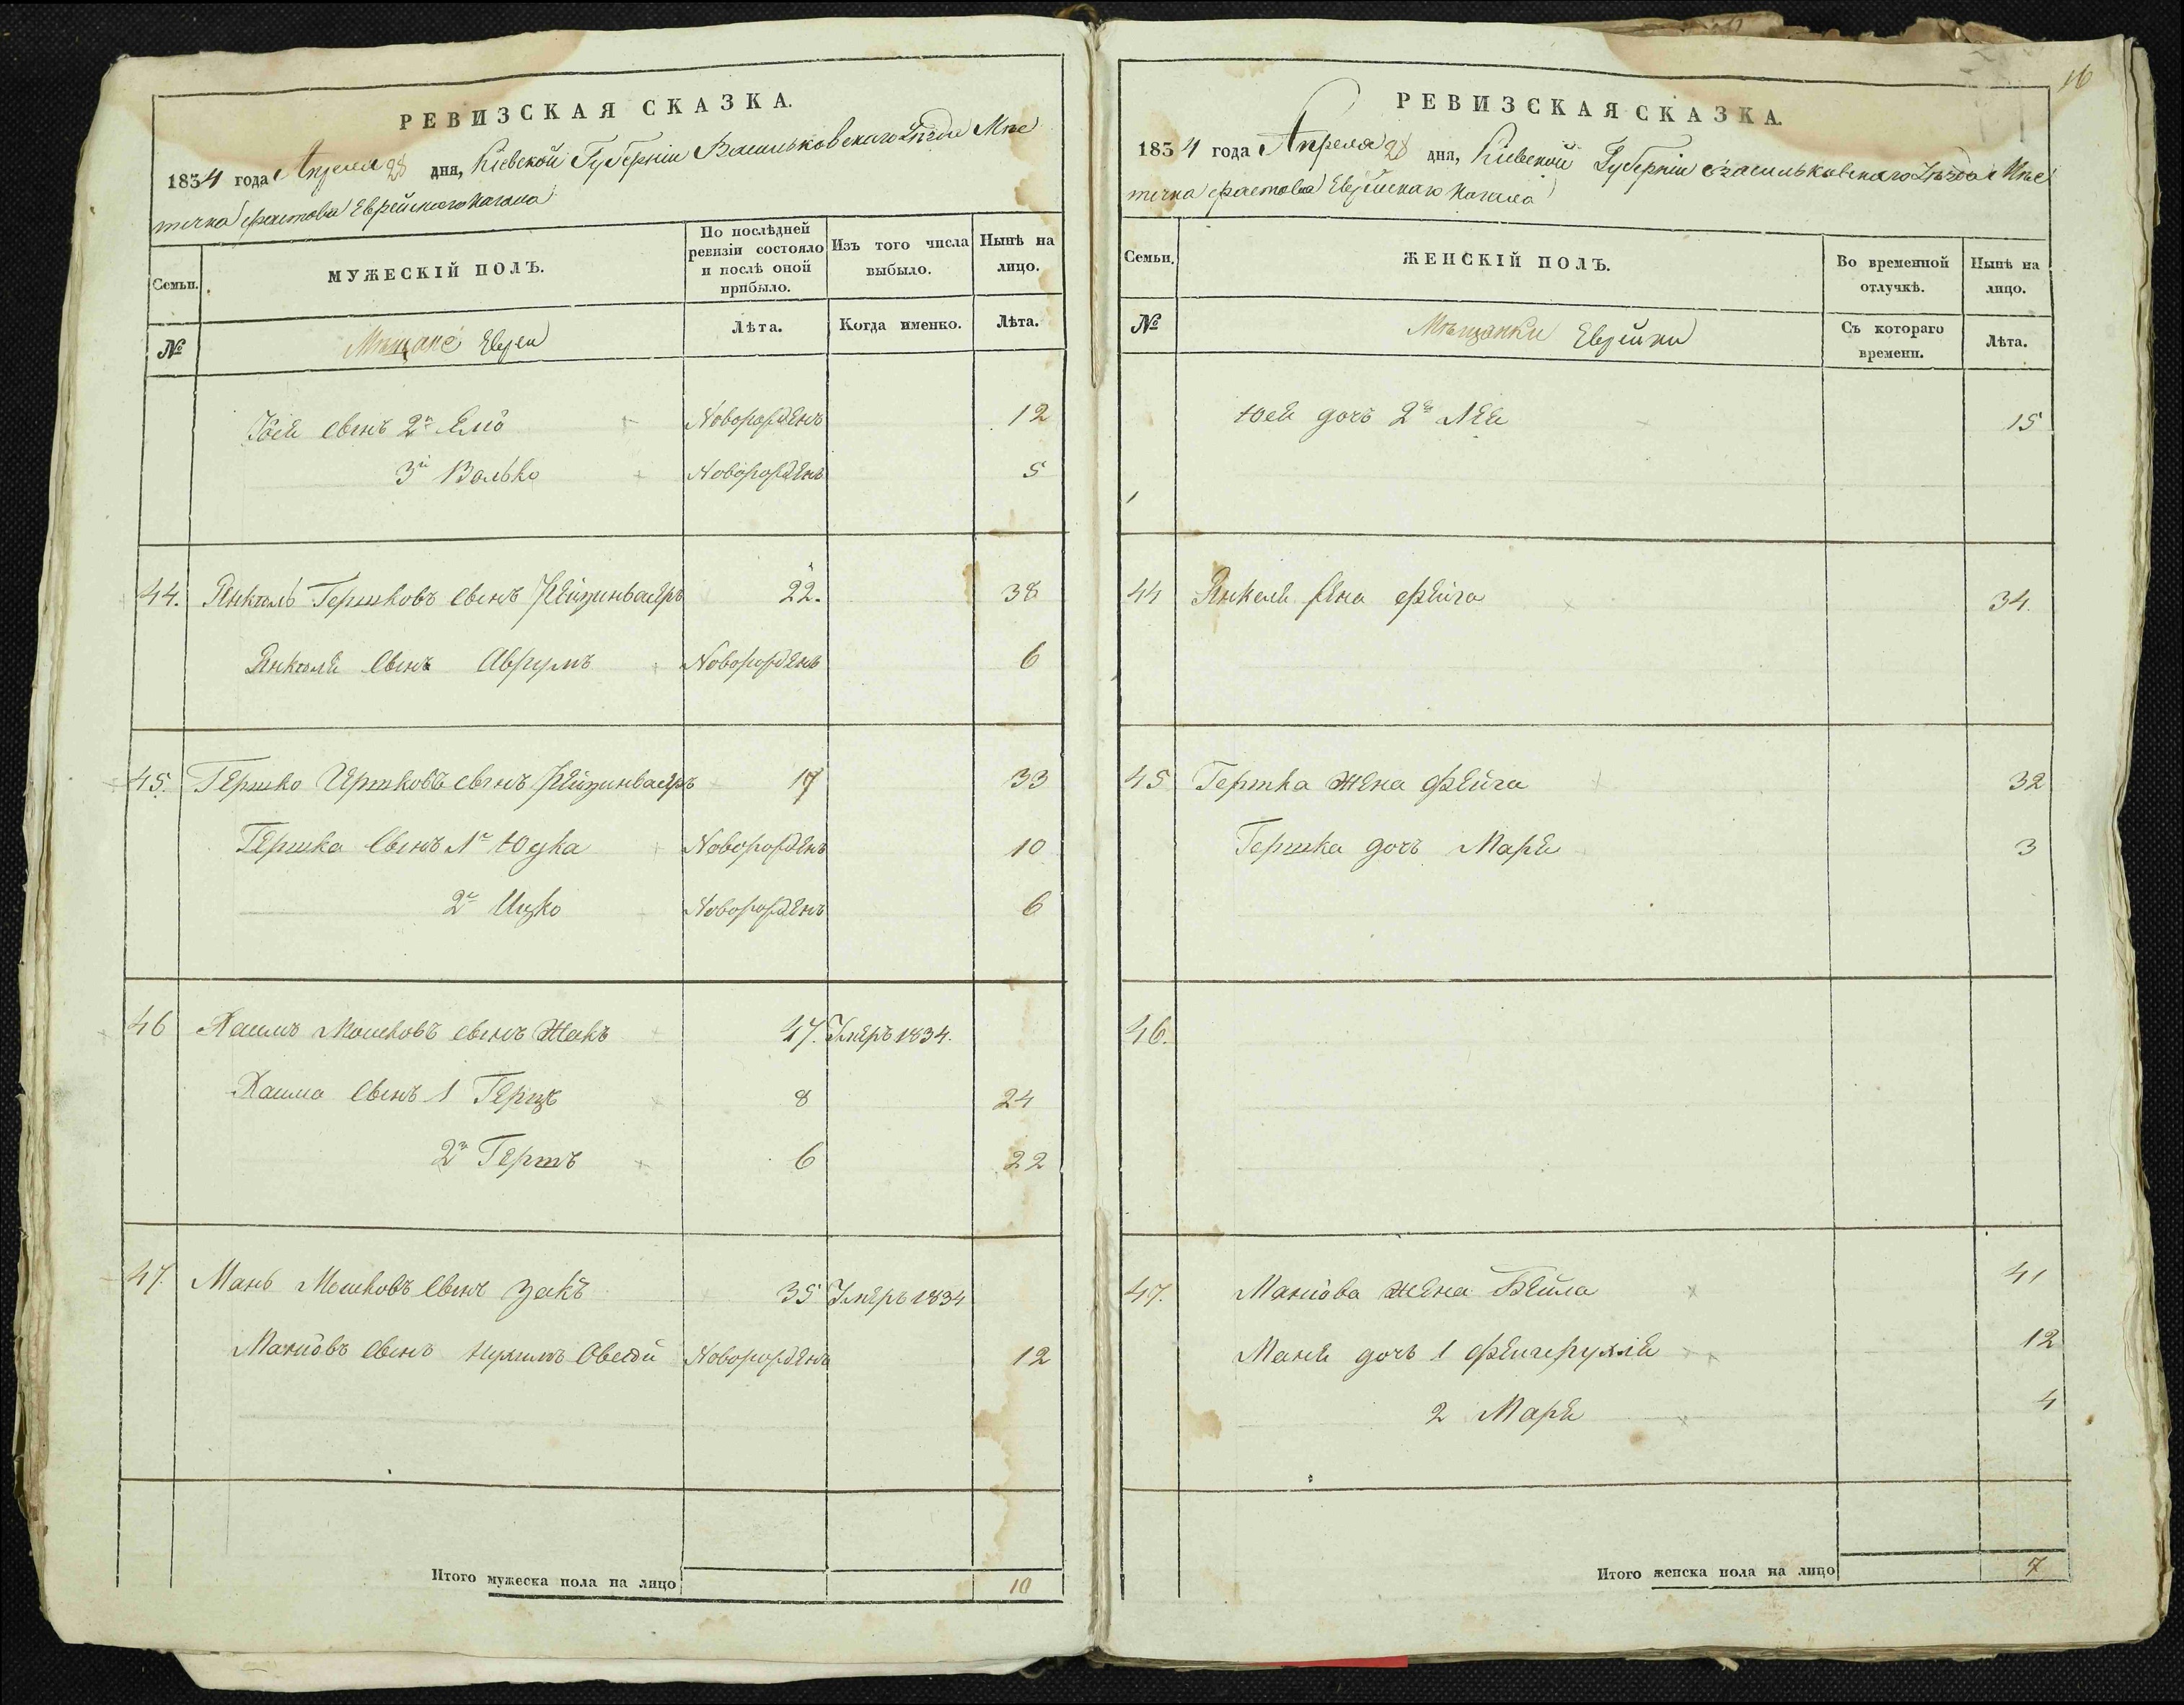 РЕВИЗСКАЯ СКАЗКА.
1834 года Апреля 28 дня, Кіевской Губерніи Васильковскаго Уѣзда Мѣс
течка Фастова Еврейскаго Кагала
Семьи.
МУЖЕСКІЙ ПОЛЪ.
По послѣдней ревизіи состояло и послѣ оной прибыло.
Изъ того числа выбыло.
Нынѣ на лицо.
№
Мѣщане Евреи
Лѣта.
Когда именно.
Лѣта.
сынъ 2й Новорожденъ 12
3й Волько Новорожденъ 5
44. Янкель Гершковъ сынъ 22. 38
Янкеля сынъ Аврумъ Новорожденъ 6
45. Гершко сынъ 17 33
Гершка сынъ 1й Юдка Новорожденъ 10
2й Ицко Новорожденъ 6
46 Хаимъ Мошковъ сынъ Жакъ 47. Умеръ 1834.
Хаима сынъ 1 Герцъ 8 24
2й Гершъ 6 22
47. Мань Мошковъ сынъ Закъ 35 Умеръ 1834
Маніовъ сынъ Нухимъ Овсей Новорожденъ 12
Итого мужеска пола на лицо 10
16
РЕВИЗСКАЯ СКАЗКА.
1834 года Апреля 28 дня, Кіевской Губерніи Васильковскаго Уѣзда Мѣс
течка Фастова Еврейскаго Кагала
Семьи.
ЖЕНСКІЙ ПОЛЪ.
Во временной отлучкѣ.
Нынѣ на лицо.
№
Мѣщанки Еврейки
Съ котораго времени.
Лѣта.
дочь 2я Лея 15
44 Янкеля жена Фейга 34.
45 Гершка жена Фейга 32
Гершка дочь Маря 3
46.
47. Маніова жена Бейла 41
Маня дочь 1 Фейгерухля 12
2 Маря 4
Итого женска пола на лицо 7